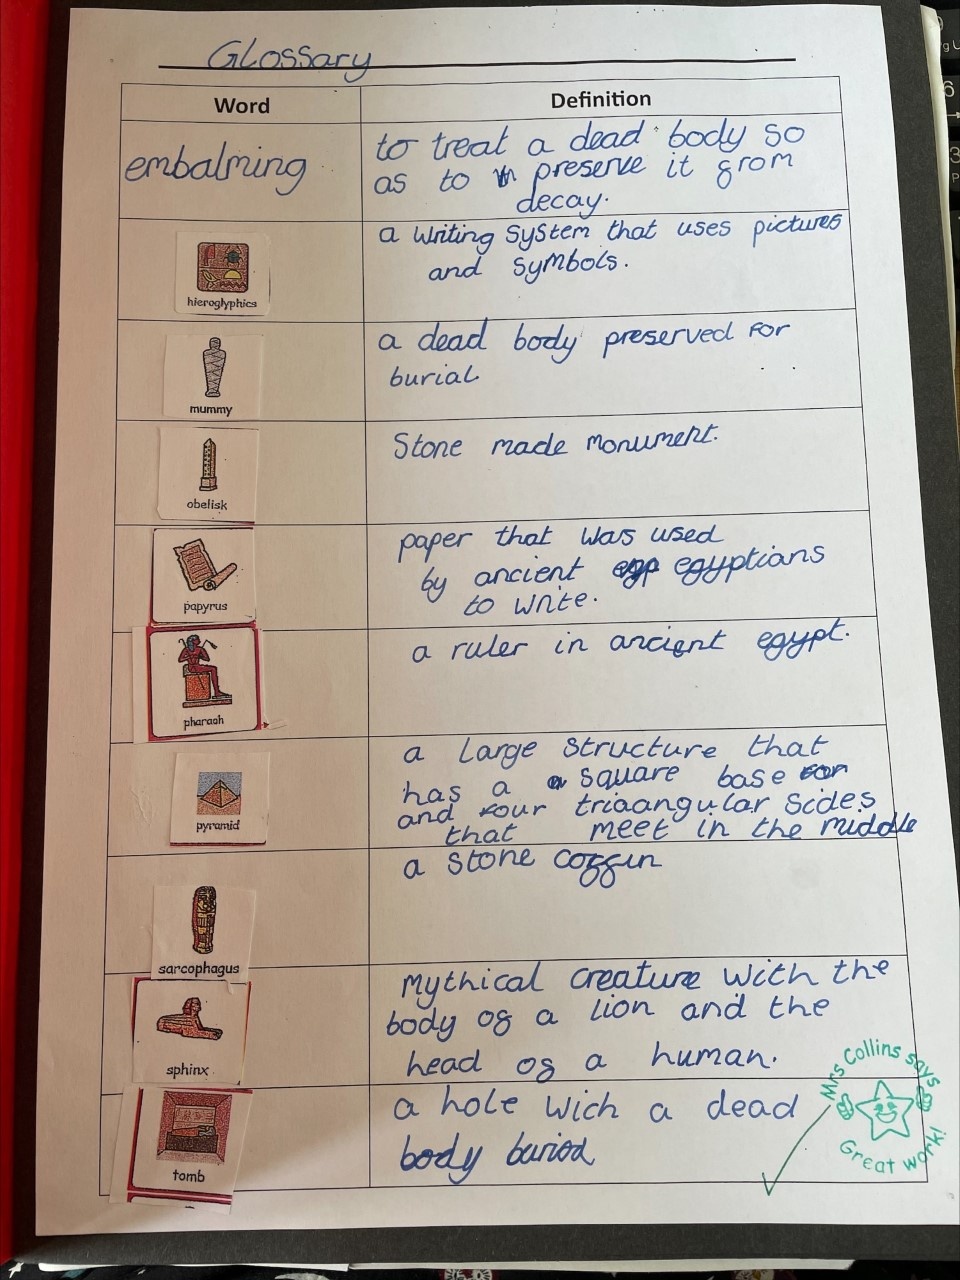 Glossary
Word
Definition
embalming
to treat a dead body so
as to preserve it from
decay.
hieroglyphics
a writing system that uses pictures
and symbols.
mummy
a dead body preserved for
burial
obelisk
Stone made monument.
papyrus
paper that was used
by ancient egyptians
to write.
pharaoh
a ruler in ancient egypt.
pyramid
a large structure that
has a square base
and four triaangular sides
that meet in the middle
sarcophagus
a stone coffin
sphinx
mythical creature with the
body of a lion and the
head of a human.
tomb
a hole wich a dead
body buried
Mrs Collins says
Great work!